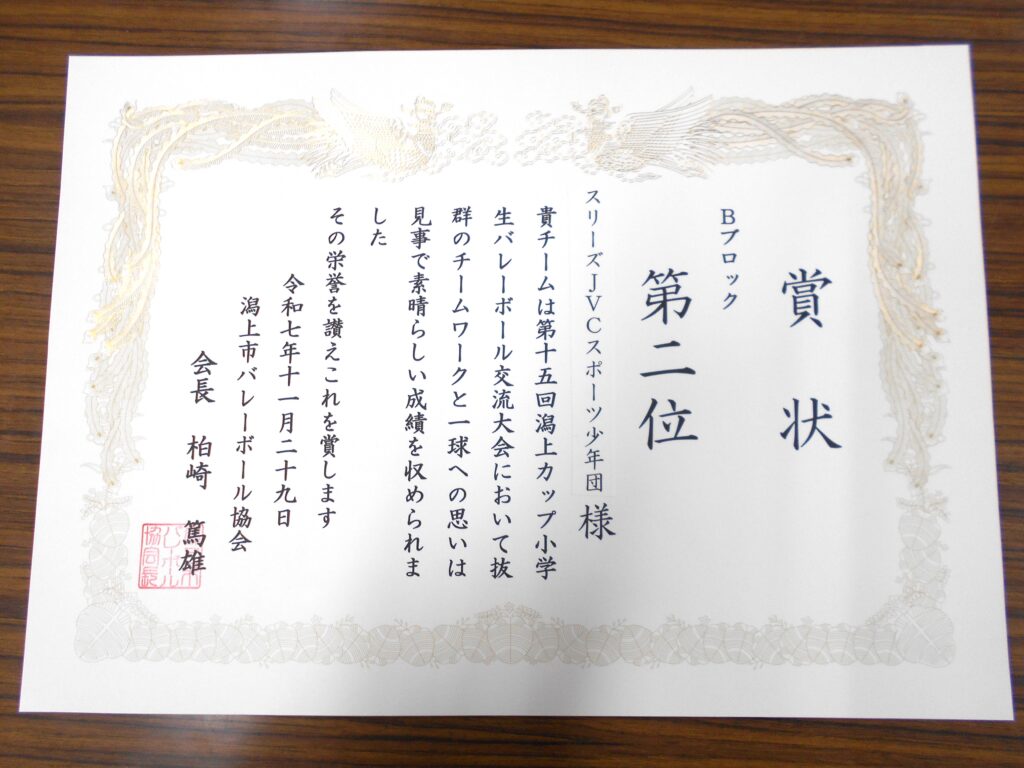 賞状
Bブロック
第二位
スリーズJVCスポーツ少年団 様
貴チームは第十五回潟上カップ小学
生バレーボール交流大会において抜
群のチームワークと一球への思いは
見事で素晴らしい成績を収められま
した
その栄誉を讃えこれを賞します
令和七年十一月二十九日
潟上市バレーボール協会
会長 柏崎 篤雄